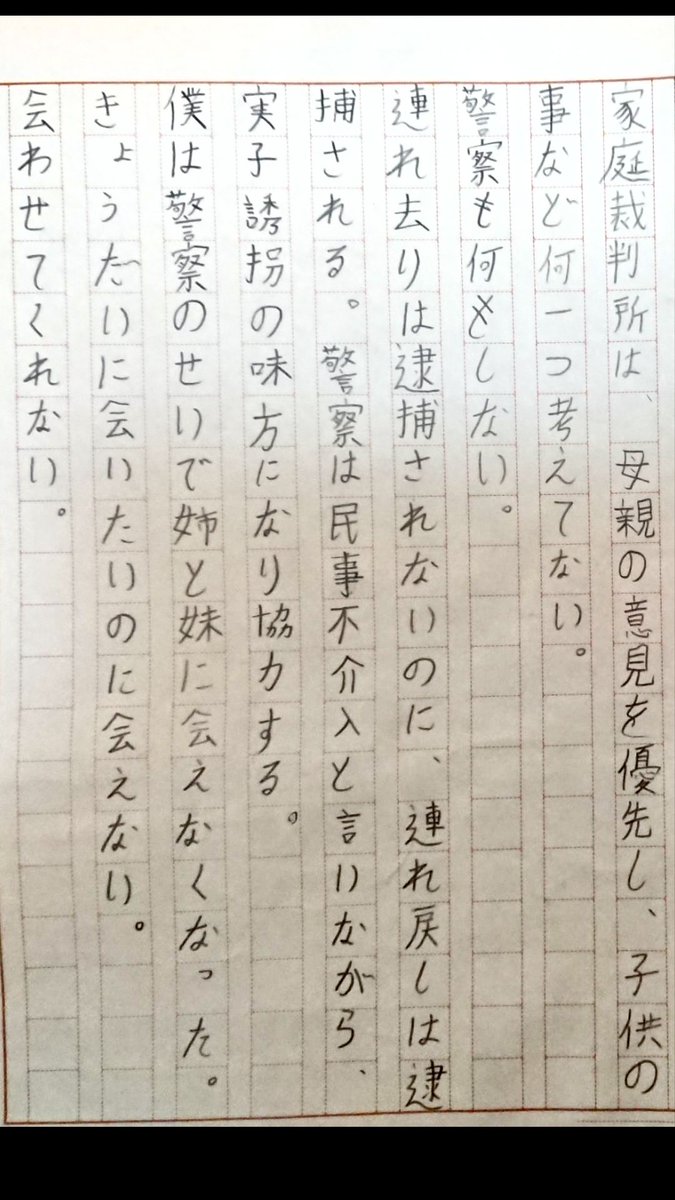 家庭裁判所は、母親の意見を優先し、子供の
事など何一つ考えてない。
警察も何もしない。
連れ去りは逮捕されないのに、連れ戻しは逮
捕される。警察は民事不介入と言いながら、
実子誘拐の味方になり協力する。
僕は警察のせいで姉と妹に会えなくなった。
きょうだいに会いたいのに会えない。
会わせてくれない。